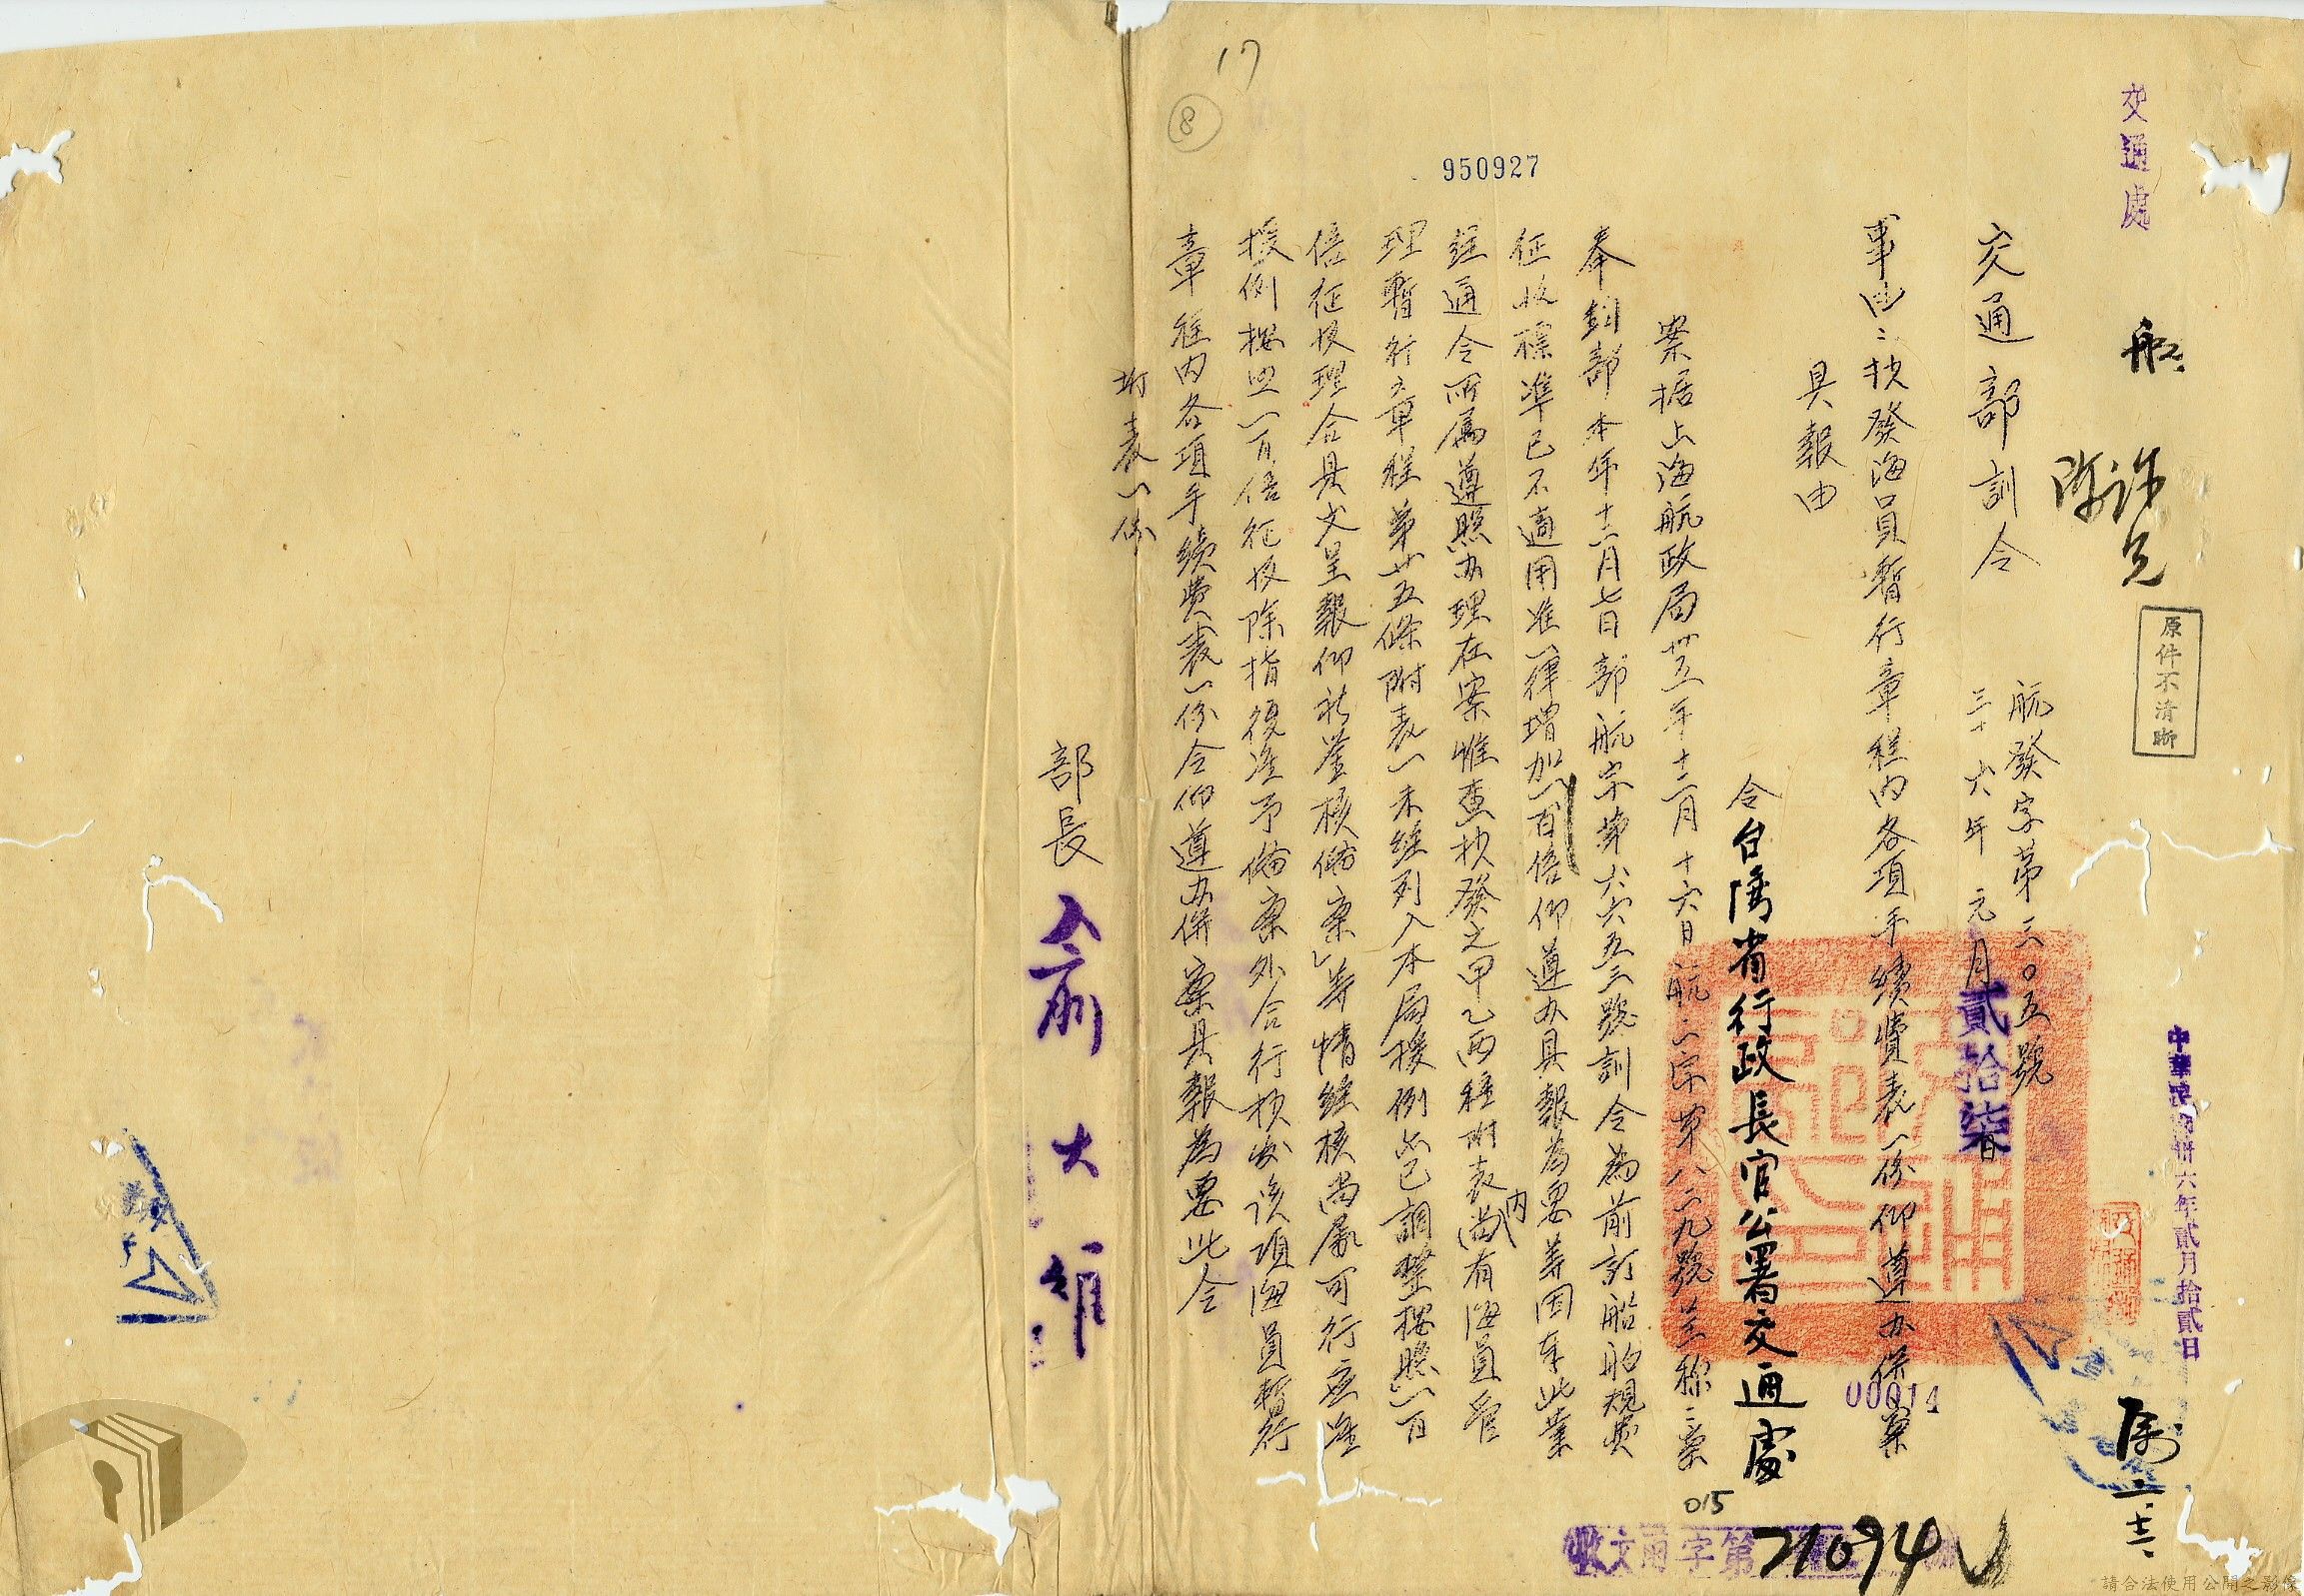 交通處
船
許
原件不清晰
中華民國卅六年貳月拾貳日
交通部訓令
航發字第二〇五號
三十六年元月貳拾柒日
事由：抄發海員暫行章程內各項手續費表一份仰遵办併案
具報由
令台灣省行政長官公署交通處
案据上海航政局卅五年十二月十六日航二字第八二九號呈稱：「案
奉鈞部本年十二月七日部航字第六六五三號訓令為前訂船舶規費
征收標準已不適用准一律增加一百倍仰遵办具報為要等因奉此業
經通令所屬遵照办理在案惟查抄發之甲乙兩種附表內尚有海員管
理暫行章程第廿五條附表一未經列入本局援例亦已調整按照一百
倍征收理合具文呈報仰祈鑒核備案」等情經核尚屬可行應准
援例按照一百倍征收除指復准予備案外合行抄發該項海員暫行
章程內各項手續費表一份令仰遵办併案具報為要此令
附表一份
部長俞大維
950927
17
8
00014
015
收文雨字第
21094
請合法使用公開之影像